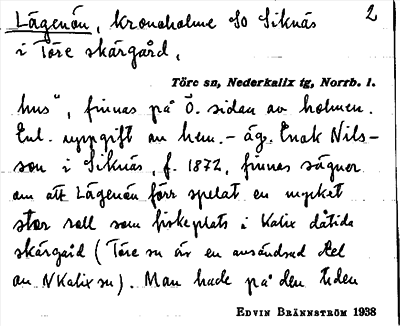 Lägenön, kronoholme SO Siknäs 2
i Töre skärgård.
Töre sn, Nederkalix tg, Norrb. l.
hus", finnas på Ö. sidan av holmen.
Enl. uppgift av hem.-äg. Enok Nils-
son i Siknäs, f. 1872, finnes sägner
om att Lägenön förr spelat en mycket
stor roll som fiskeplats i Kalix dåtida
skärgård (Töre sn är en avsöndrad del
av NKalix sn). Man hade på den tiden
EDVIN BRÄNNSTRÖM 1938